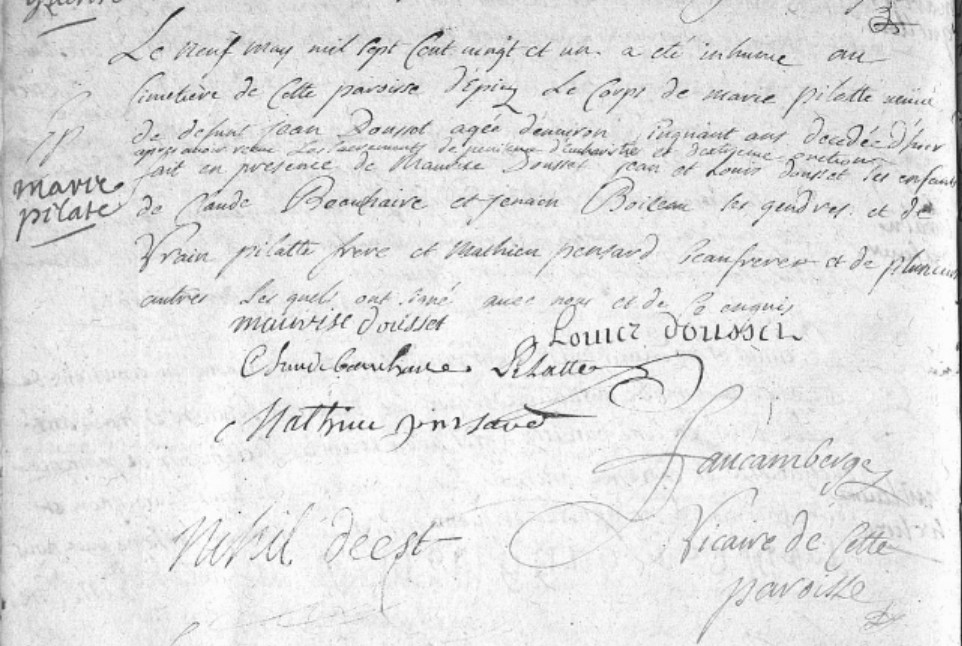 Le neuf may mil sept Cent vingt et un a eté inhumé au
Cimetière de Cette paroisse d'Epiez Le Corps de marie pilatte veuve
de defunt Jean Dousset agée denviron Cinquant ans decedée d'hier
apres avoir receu Les sacrements de penitence d'Eucharistie et d'extreme onction
fait en presence de Maurise Dousset Jean et Louis dousset les enfants
marie
pilate
de Claude Beauhaire et Boileau les gendres et de
Vrain pilatte frere et Mathieu pensard beaufreres et de plusieurs
autres Les quels ont signé avec nous et de Ce enquis
maurise dousset
Louict doussen
Claude beauhaire Pilatte
Mathieu pinsard
faucamberge
Nihil deest
Vicaire de Cette
paroisse